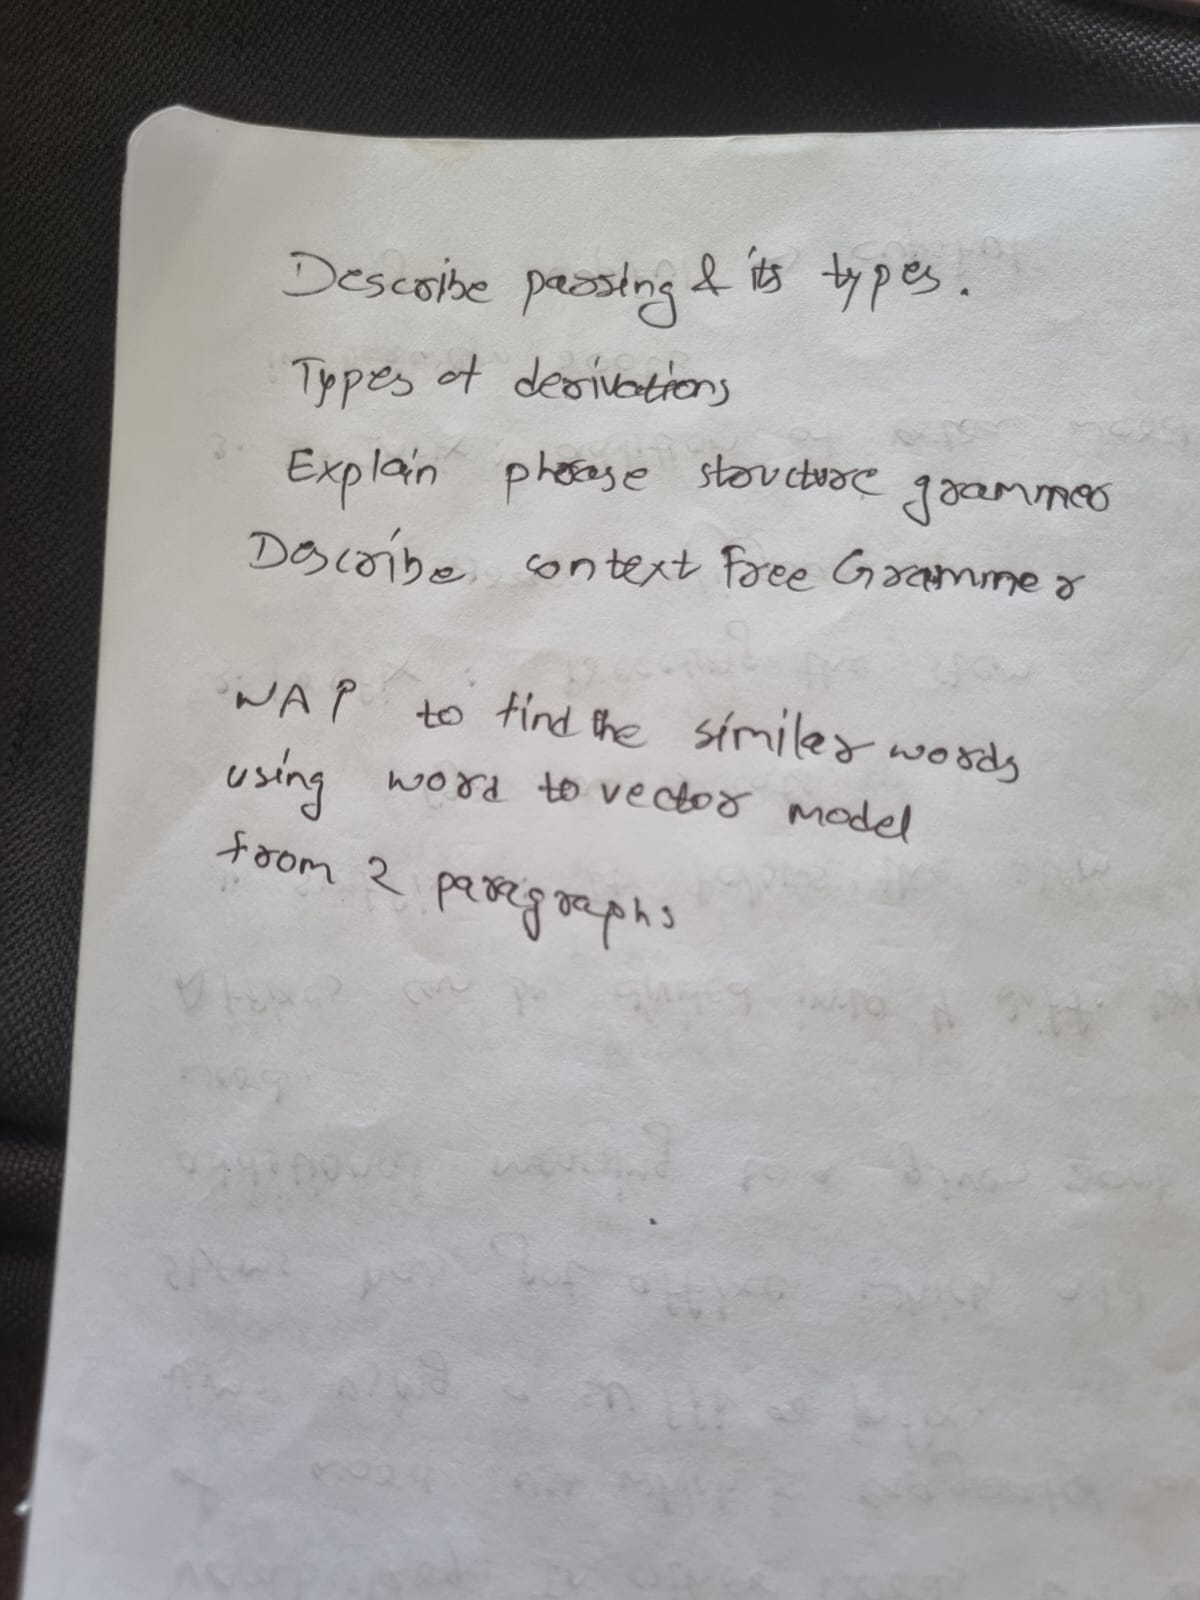 Describe parsing & its types.
Types of derivations
Explain phrase structure grammer
Describe context Free Grammer
WAP to find the similar words
using word to vector model
from 2 paragraphs